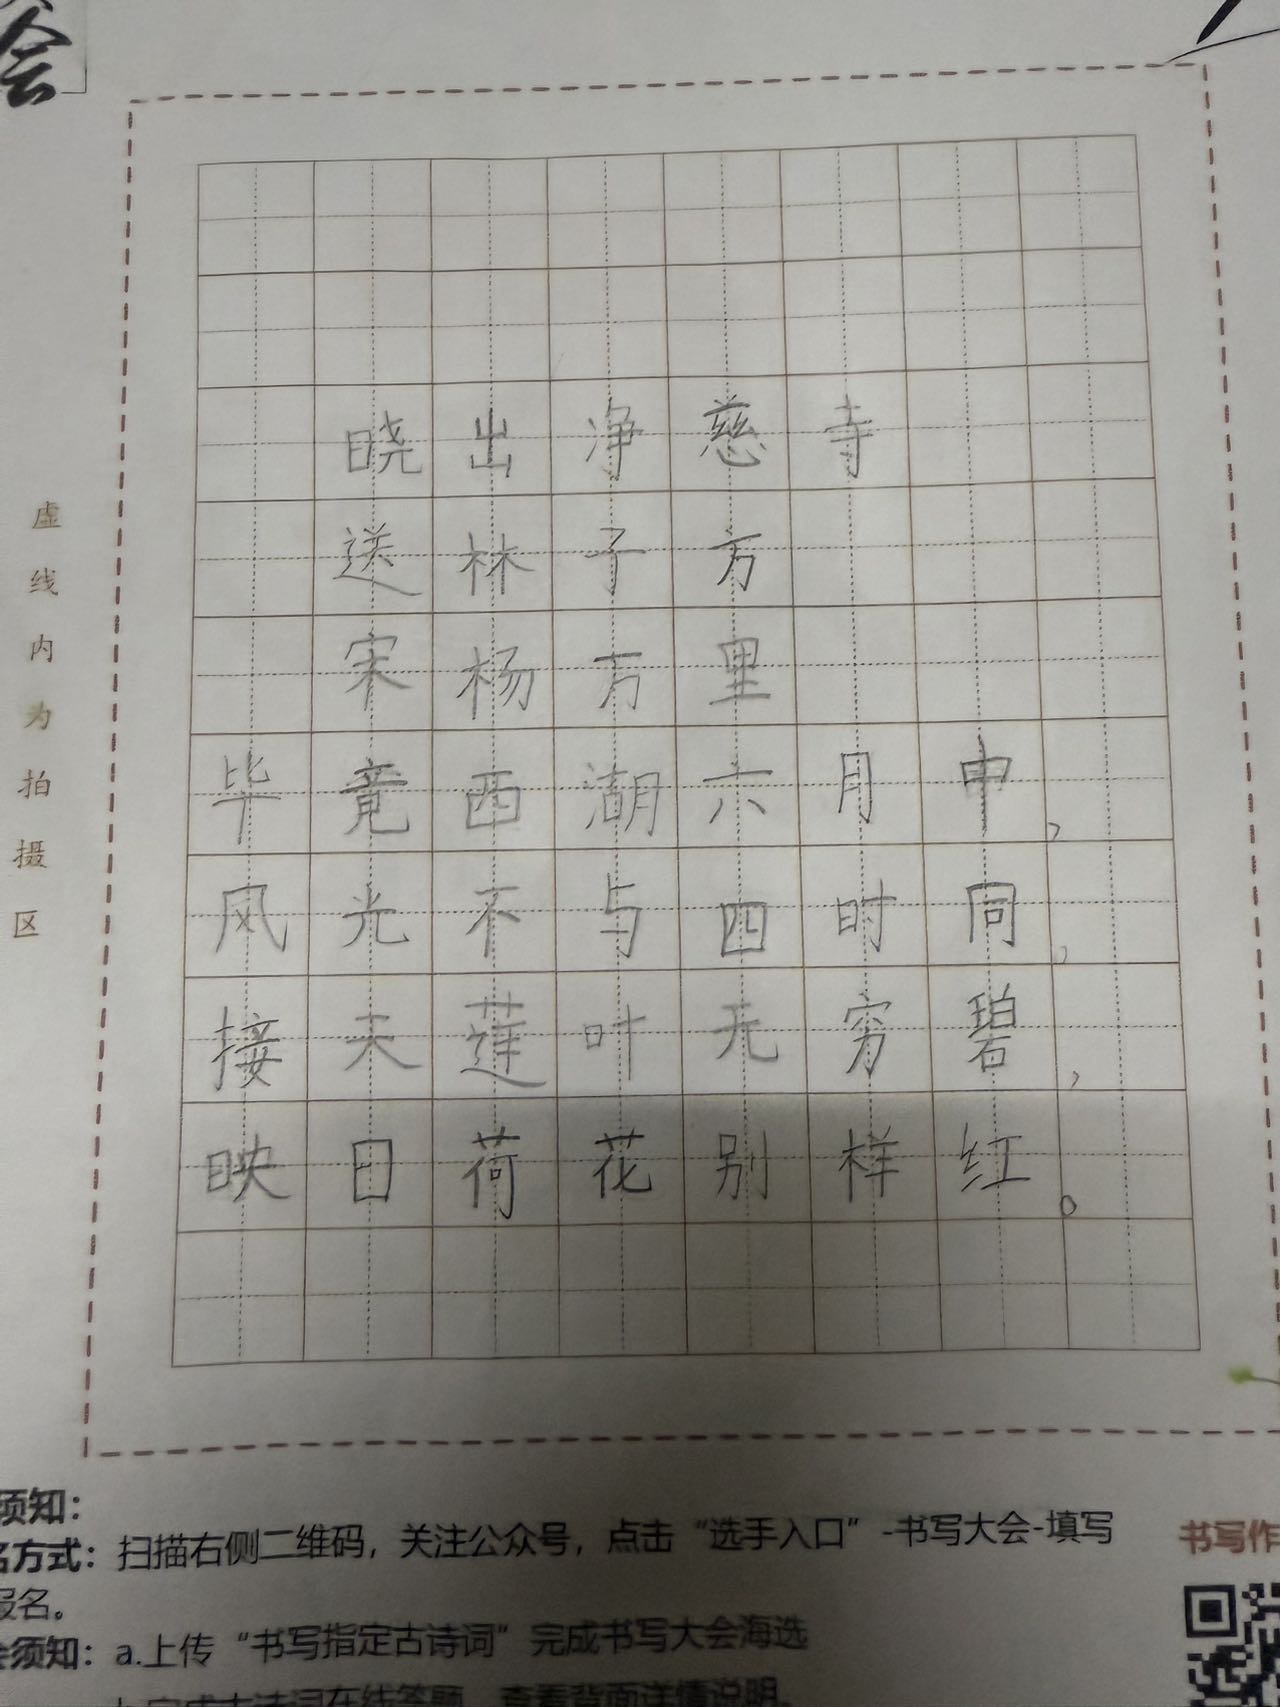 会
晓出净慈寺
送林子方
宋杨万里
毕竟西湖六月中，
风光不与四时同，
接天莲叶无穷碧，
映日荷花别样红。
虚线内为拍摄区
须知：
名方式：扫描右侧二维码，关注公众号，点击“选手入口”-书写大会-填写
报名。
会须知：a.上传“书写指定古诗词”完成书写大会海选
b.完成古诗词在线答题，查看背面详情说明。
书写作